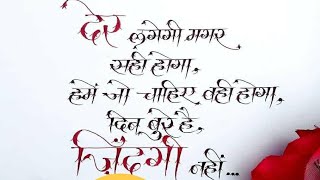 देर लगेगी मगर,
सही होगा,
हमें जो चाहिए वही होगा,
दिन बुरे है,
ज़िंदगी नहीं...